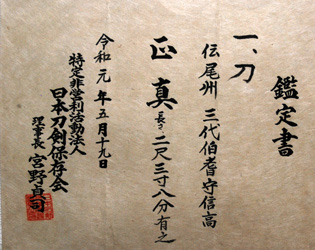 鑑定書
一、刀
伝尾州 三代伯耆守信高
正真 長さ二尺三寸八分有之
令和元年五月十九日
特定非営利活動法人
日本刀剣保存会
理事長 宮野貞司